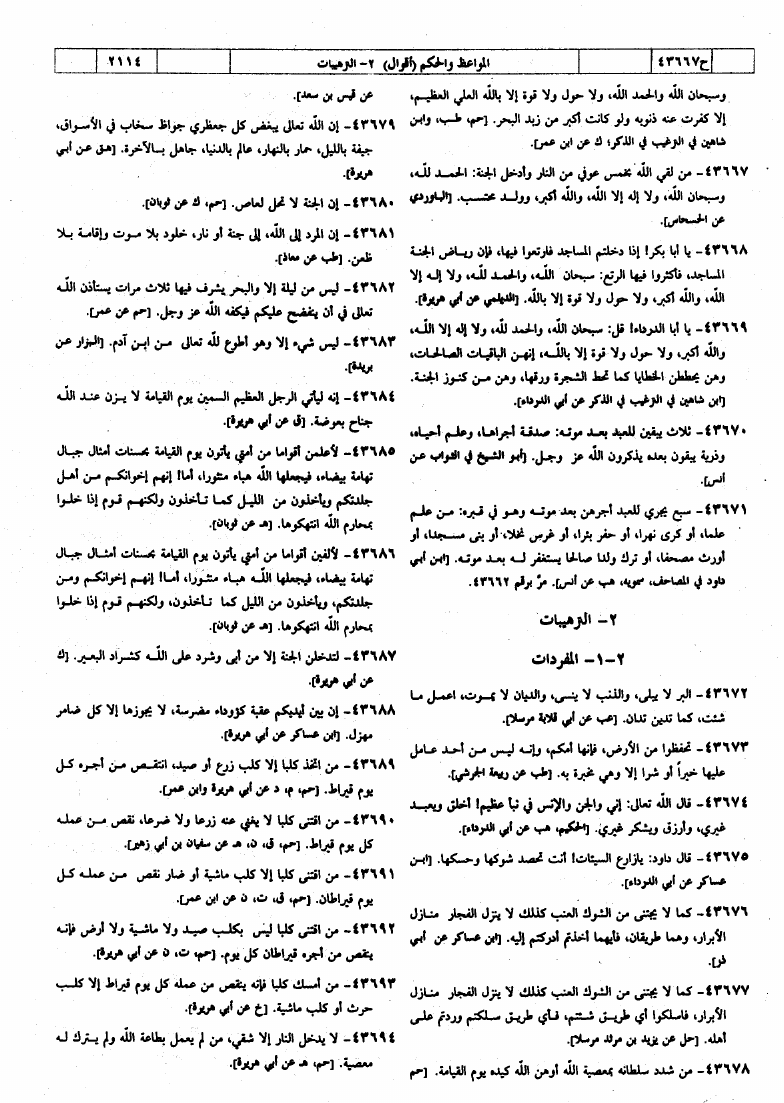 ح٤٣٦٦٧
المواعظ والحكم (أقوال) ٢- الترهيبات
٢١١٤
وسبحان الله والحمد الله، ولا حول ولا قوة إلا بالله العلي العظيم،
إلا كفرت عنه ذنوبه ولو كانت أكبر من زبد البحر. [حم، طب، وابن
شاهين في الترغيب في الذكر؛ ك عن ابن عمر].
٤٣٦٦٧- من لقي الله بخمس عوفي من النار وأدخل الجنة: الحمـد للـه،
وسبحان الله، ولا إله إلا الله، والله أكبر، وولـد محتسب. [الباوردي
عن الحسحاس].
٤٣٦٦٨- يا أبا بكر! إذا دخلتم المساجد فارتعوا فيها، فإن ريـاض الجنة
المساجد، فأكثروا فيها الرتع: سبحان اللـه، والحمد للـه، ولا إلـه إلا
الله، والله أكبر، ولا حول ولا قوة إلا بالله. [الديلمي عن أبي هريرة].
٤٣٦٦٩- يا أبا الدرداء! قل: سبحان الله، والحمد لله، ولا إله إلا اللـه،
والله أكبر، ولا حول ولا قوة إلا باللـه، إنهـن الباقيـات الصالحـات،
وهن يحططن الخطايا كما تحط الشجرة ورقها، وهن مـن كنـوز الجنة.
[ابن شاهين في الترغيب في الذكر عن أبي الدرداء].
٤٣٦٧٠- ثلاث يبقين للعبد بعـد موتـه: صدقـة أجراهـا، وعلـم أحياه،
وذرية يبقون بعده يذكرون الله عز وجـل. [أبو الشيخ في الثواب عن
أنس].
٤٣٦٧١- سبع يجري للعبد أجرهن بعد موتـه وهـو في قبره: مـن علـم
علما، أو كرى نهرا، أو حفر بئرا، أو غرس نخلا، أو بنى مسجـدا، أو
أورث مصحفا، أو ترك ولدا صالحا يستغفر لـه بعـد موتـه. [ابن أبي
داود في المصاحف، سمويه، هب عن أنس]. مرّ برقم ٤٣٦٦٢.
٢- الترهيبات
٢-١- المفردات
٤٣٦٧٢- البر لا يبلى، والذنب لا ينسى، والديان لا يمـوت، اعمـل مـا
شئت، كما تدين تدان. [عب عن أبي قلابة مرسلا].
٤٣٦٧٣- تحفظوا من الأرض، فإنها أمكم، وإنـه ليس مـن أحـد عـامل
عليها خيراً أو شرا إلا وهي مخبرة به. [طب عن ربيعة الجرشي].
٤٣٦٧٤- قال الله تعالى: إني والجن والإنس في نبأ عظيم! أخلق ويعبـد
غيري، وأرزق ويشكر غيري. [الحكيم، هب عن أبي الدرداء].
٤٣٦٧٥- قال داود: يازارع السيئات! أنت تحصد شوكها وحسكها. [ابـن
عساكر عن أبي الدرداء].
٤٣٦٧٦- كما لا يجتنى من الشوك العنب كذلك لا ينزل الفجار منـازل
الأبرار، وهما طريقان، فأيهما أخذتم أدركتم إليه. [ابن عساكر عن أبي
ذر].
٤٣٦٧٧- كمـا لا يجتنى من الشوك العنب كذلك لا ينزل الفجار منـازل
الأبرار، فاسلكوا أي طريـق شـئتم، فـأي طريـق سـلكتم وردتم علـى
أهله. [حل عن يزيد بن مرثد مرسلا].
٤٣٦٧٨- من شدد سلطانه بمعصية الله أوهن الله كيده يوم القيامة. [حم
عن قيس بن سعد].
٤٣٦٧٩- إن الله تعالى يبغض كل جعظري جواظ سخاب في الأسـواق،
جيفة بالليل، حمار بالنهار، عالم بالدنيا، جاهل بـالآخرة. [هـق عن أبي
هريرة].
٤٣٦٨٠- إن الجنة لا تحل لعاص. [حم، ك عن ثوبان].
٤٣٦٨١- إن المرد إلى الله، إلى جنة أو نار، خلود بلا مـوت وإقامـة بـلا
ظعن. [طب عن معاذ].
٤٣٦٨٢- ليس من ليلة إلا والبحر يشرف فيها ثلاث مرات يستأذن اللـه
تعالى في أن ينفضح عليكم فيكفه الله عز وجل. [حم عن عمر].
٤٣٦٨٣- ليس شيء إلا وهو أطوع لله تعالى مـن ابـن آدم. [البزار عن
بريدة].
٤٣٦٨٤- إنه ليأتي الرجل العظيم السمين يوم القيامة لا يـزن عنـد اللـه
جناح بعوضة. [ق عن أبي هريرة].
٤٣٦٨٥- لأعلمن أقواما من أمتي يأتون يوم القيامة بحسنات أمثال جبال
تهامة بيضاء، فيجعلها الله هباء منثورا، أما! إنهم إخوانكـم مـن أهـل
جلدتكم ويأخذون من الليل كمـا تـأخذون ولكنهـم قـوم إذا خلـوا
بمحارم الله انتهكوها. [هـ عن ثوبان].
٤٣٦٨٦- لألفين أقواما من أمتي يأتون يوم القيامة بحسنات أمثـال جبال
تهامة بيضاء، فيجعلها اللـه هباء منثورا، أمـا! إنهـم إخوانكـم ومـن
جلدتكم، ويأخذون من الليل كما تـأخذون، ولكنهم قـوم إذا خلـوا
بمحارم الله انتهكوها. [هـ عن ثوبان].
٤٣٦٨٧- لتدخلن الجنة إلا من أبى وشرد على اللـه كشـراد البعـير. [ك
عن أبي هريرة].
٤٣٦٨٨- إن بين أيديكم عقبة كؤوداء مضرسة، لا يجوزها إلا كل ضامر
مهزل. [ابن عساكر عن أبي هريرة].
٤٣٦٨٩- من اتخذ كلبا إلا كلب زرع أو صيد، انتقـص مـن أجـره كـل
يوم قيراط. [حم، م، د عن أبي هريرة وابن عمر].
٤٣٦٩٠- من اقتنى كلبا لا يغني عنه زرعا ولا ضرعا، نقص مـن عملـه
كل يوم قيراط. [حم، ق، ن، هـ عن سفيان بن أبي زهير].
٤٣٦٩١- من اقتنى كلبا إلا كلب ماشية أو ضار نقص مـن عملـه كـل
يوم قيراطان. [حم، ق، ت، ن عن ابن عمر].
٤٣٦٩٢- من اقتنى كلبا ليس بكلب صيـد ولا ماشية ولا أرض فإنـه
ينقص من أجره قيراطان كل يوم. [حم، ت، ن عن أبي هريرة].
٤٣٦٩٣- من أمسك كلبا فإنه ينقص من عمله كل يوم قيراط إلا كلـب
حرث أو كلب ماشية. [خ عن أبي هريرة].
٤٣٦٩٤- لا يدخل النار إلا شقي، من لم يعمل بطاعة الله ولم يترك لـه
معصية. [حم، هـ عن أبي هريرة].